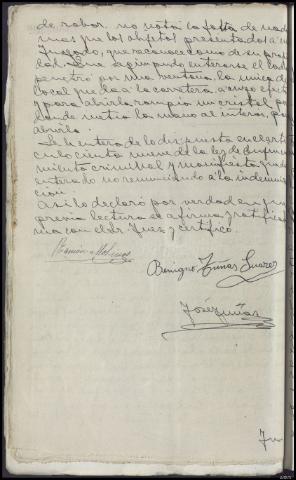 de robar, no nota la falta de nada
mas que los objetos presentados a
Juzgado, que reconoce como de su pro
Que segun pudo enterarse el la
penetró por una ventana, la unica de
local que da a la carretera, a cuyo efec
y para abrirla rompio un cristal po
donde metio la mano al interior, pa
abrirla.
Se le entera de lo dispuesto en el art
culo ciento nueve de la ley de Enjuicia
miento criminal y manifiesta queda
enterado no renunciando a la indemni
cion.
Asi lo declaró por verdad en su
previa lectura se afirma y ratifica
ma con el Sr. Juez y certifico.
Ramón
Benigno Zuñas Suarez
José Zuñas